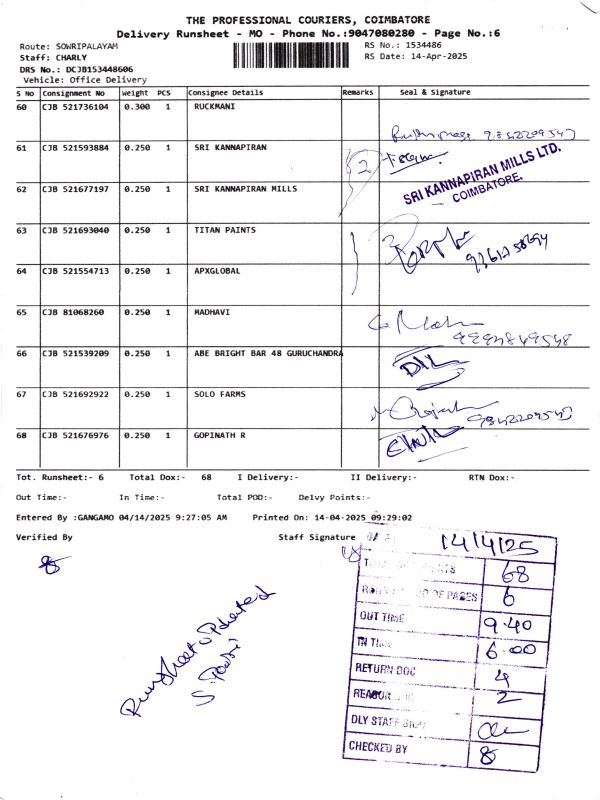 THE PROFESSIONAL COURIERS, COIMBATORE
Delivery Runsheet - MO - Phone No.:9047080280 - Page No.:6
Route: SOWRIPALAYAM
RS No.: 1534486
Staff: CHARLY
RS Date: 14-Apr-2025
DRS No.: DCJB153448606
Vehicle: Office Delivery
S No Consignment No Weight PCS Consignee Details Remarks Seal & Signature
60 CJB 521736104 0.300 1 RUCKMANI
61 CJB 521593884 0.250 1 SRI KANNAPIRAN
2
SRI KANNAPIRAN MILLS LTD.
COIMBATORE.
62 CJB 521677197 0.250 1 SRI KANNAPIRAN MILLS
63 CJB 521693040 0.250 1 TITAN PAINTS
64 CJB 521554713 0.250 1 APXGLOBAL
65 CJB 81068260 0.250 1 MADHAVI
66 CJB 521539209 0.250 1 ABE BRIGHT BAR 48 GURUCHANDRA
67 CJB 521692922 0.250 1 SOLO FARMS
68 CJB 521676976 0.250 1 GOPINATH R
Tot. Runsheet:- 6 Total Dox:- 68 I Delivery:- II Delivery:- RTN Dox:-
Out Time:- In Time:- Total POD:- Delvy Points:-
Entered By :GANGAMO 04/14/2025 9:27:05 AM Printed On: 14-04-2025 09:29:02
Verified By Staff Signature
14/4/25
68
OF PAGES 6
OUT TIME 9.40
IN TIME 6.00
RETURN DOC 4
2
DLY STAFF SIGN
CHECKED BY 8